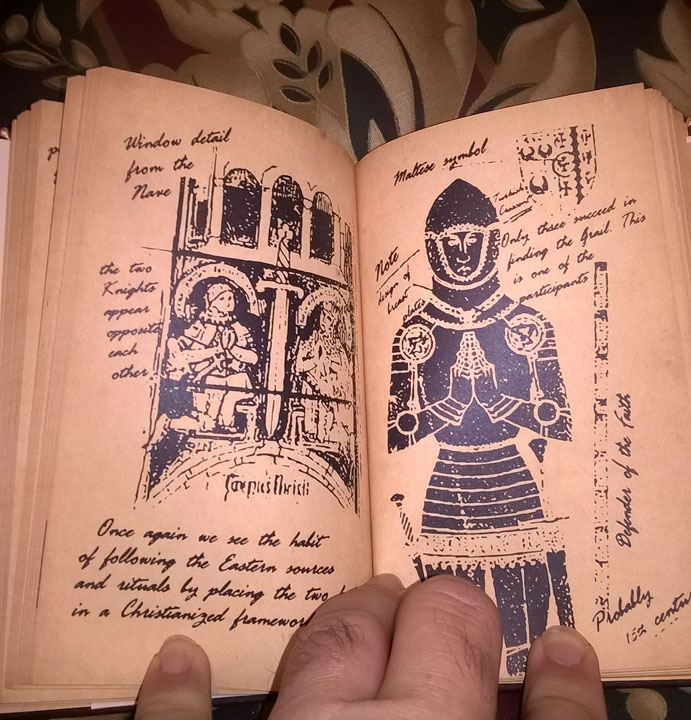 Window detail
from the
Nave
the two
Knights
appear
opposite
each
other
Corpus Christi
Once again we see the habit
of following the Eastern sources
and rituals by placing the two
in a Christianized
Maltese symbol
Turkish
Crescent
Only three succeed in
finding the Grail. This
is one of the
participants
Note
design of
breast
plates
Defender of the Faith
Probably
15th